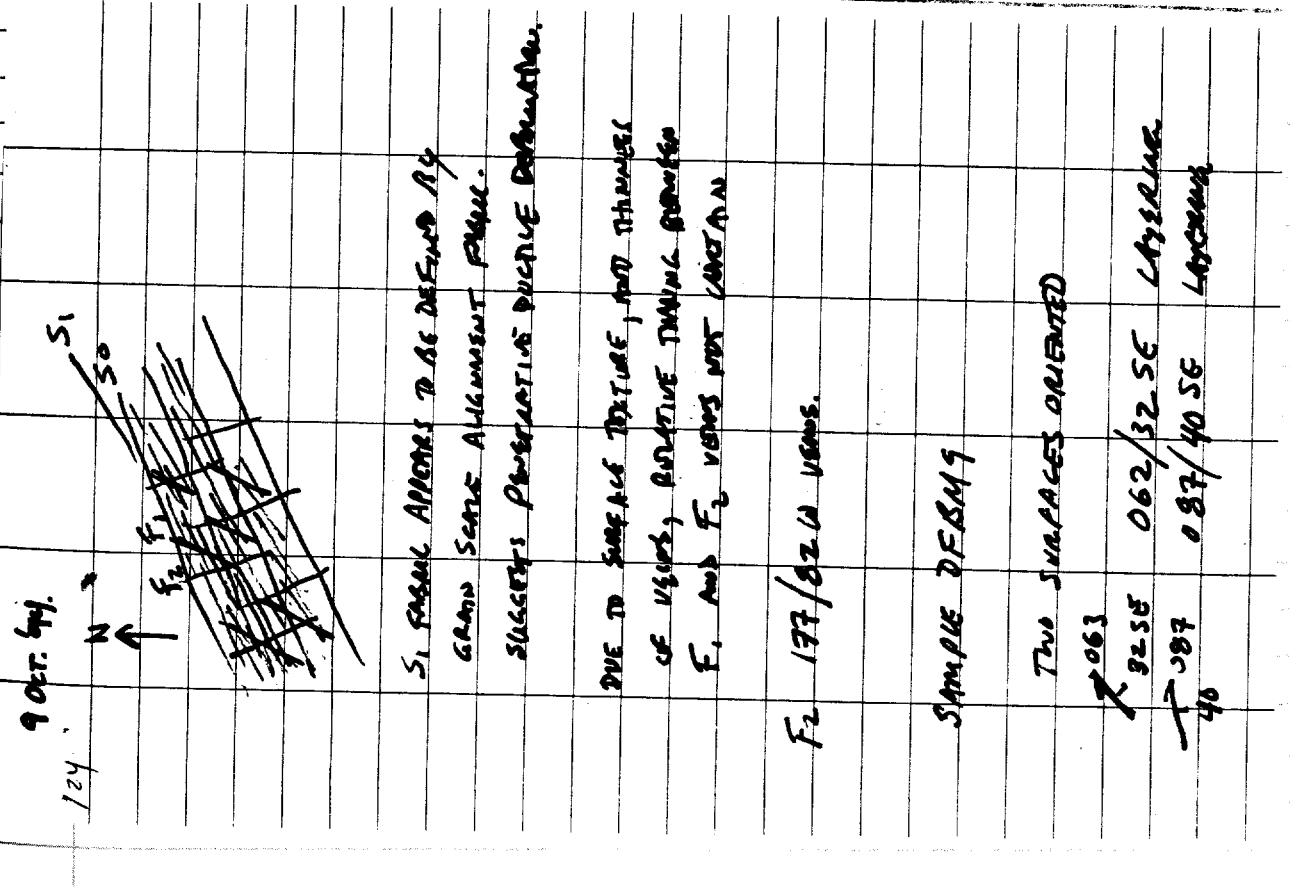 124
9 OCT.
N
S1
S0
F2 F1
S1 FABRIC APPEARS TO BE DEFINED BY
GRAIN SCALE ALIGNMENT FABRIC.
SUGGESTS PENETRATIVE DUCTILE DEFORMATION.
DUE TO SURFACE TEXTURE, AND THINNESS
OF VEINS, RELATIVE TIMING BETWEEN
F1 AND F2 VEINS NOT CERTAIN
F2 177/82 W VEINS.
SAMPLE DFBM9
TWO SURFACES ORIENTED
063
32 SE 062/32 SE LAYERING
087 087/40 SE LAYERING
40